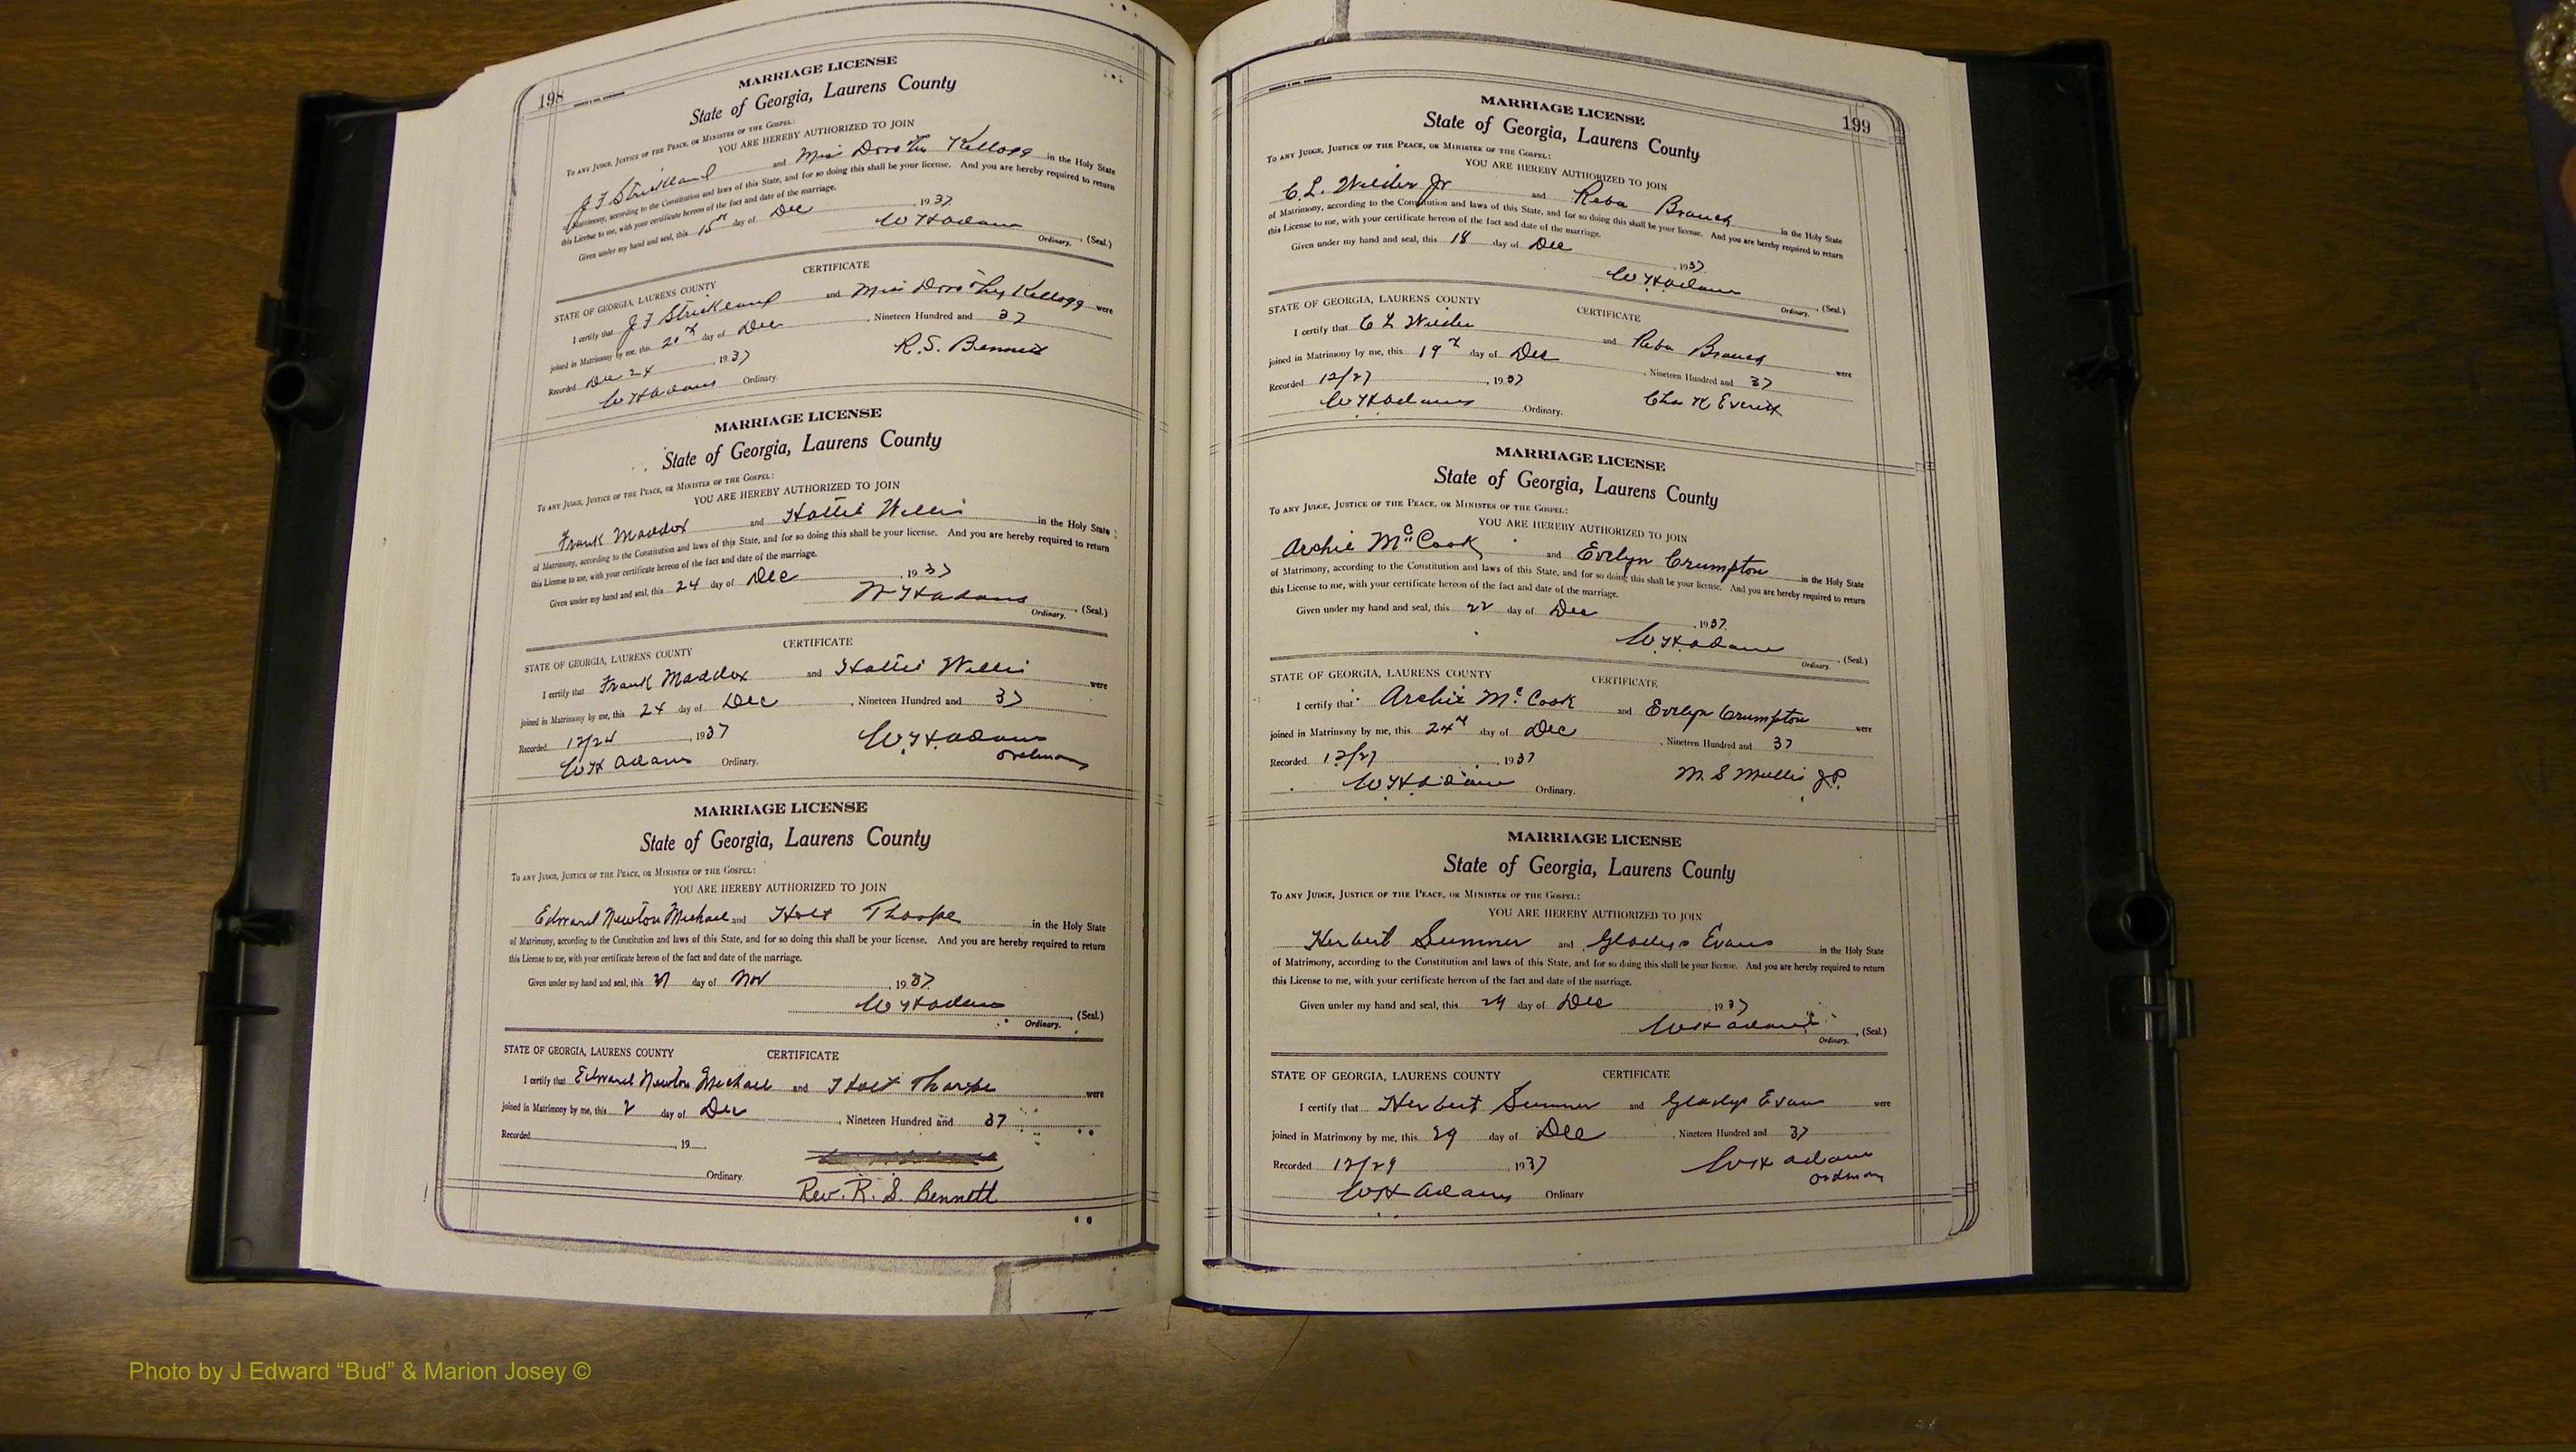 198
MARRIAGE LICENSE
State of Georgia, Laurens County
To any Judge, Justice of the Peace, or Minister of the Gospel:
YOU ARE HEREBY AUTHORIZED TO JOIN
J F Strickland and Miss Dorothy Kellogg in the Holy State
of Matrimony, according to the Constitution and laws of this State, and for so doing this shall be your license. And you are hereby required to return
this License to me, with your certificate hereon of the fact and date of the marriage.
Given under my hand and seal, this 15th day of Dec, 1937
W H Adams, (Seal.)
Ordinary.
CERTIFICATE
STATE OF GEORGIA, LAURENS COUNTY
I certify that J F Strickland and Miss Dorothy Kellogg were
joined in Matrimony by me, this day of Dec, Nineteen Hundred and 37
Recorded Dec 24, 1937
R.S. Bennett
W H Adams Ordinary.
MARRIAGE LICENSE
State of Georgia, Laurens County
To any Judge, Justice of the Peace, or Minister of the Gospel:
YOU ARE HEREBY AUTHORIZED TO JOIN
Frank Maddox and Hattie Willis in the Holy State
of Matrimony, according to the Constitution and laws of this State, and for so doing this shall be your license. And you are hereby required to return
this License to me, with your certificate hereon of the fact and date of the marriage.
Given under my hand and seal, this 24 day of Dec, 1937
W H Adams, (Seal.)
Ordinary.
CERTIFICATE
STATE OF GEORGIA, LAURENS COUNTY
I certify that Frank Maddox and Hattie Willis were
joined in Matrimony by me, this 24 day of Dec, Nineteen Hundred and 37
Recorded 12/24, 1937
W.H. Adams
Ordinary
W H Adams Ordinary.
MARRIAGE LICENSE
State of Georgia, Laurens County
To any Judge, Justice of the Peace, or Minister of the Gospel:
YOU ARE HEREBY AUTHORIZED TO JOIN
Edward Newton Michael and Holt Thorpe in the Holy State
of Matrimony, according to the Constitution and laws of this State, and for so doing this shall be your license. And you are hereby required to return
this License to me, with your certificate hereon of the fact and date of the marriage.
Given under my hand and seal, this day of Nov, 1937
W H Adams, (Seal.)
Ordinary.
STATE OF GEORGIA, LAURENS COUNTY CERTIFICATE
I certify that Edward Newton Michael and Holt Thorpe were
joined in Matrimony by me, this 2 day of Dec, Nineteen Hundred and 37
Recorded, 19
Ordinary.
Rev. R. S. Bennett
199
MARRIAGE LICENSE
State of Georgia, Laurens County
To any Judge, Justice of the Peace, or Minister of the Gospel:
YOU ARE HEREBY AUTHORIZED TO JOIN
C. L. Weider Jr and Reba Branch in the Holy State
of Matrimony, according to the Constitution and laws of this State, and for so doing this shall be your license. And you are hereby required to return
this License to me, with your certificate hereon of the fact and date of the marriage.
Given under my hand and seal, this 18 day of Dec, 1937
W H Adams, (Seal.)
Ordinary.
STATE OF GEORGIA, LAURENS COUNTY CERTIFICATE
I certify that C L and Reba Branch were
joined in Matrimony by me, this 19th day of Dec, Nineteen Hundred and 37
Recorded 12/27, 1937
Chas K Everitt
W H Adams Ordinary.
MARRIAGE LICENSE
State of Georgia, Laurens County
To any Judge, Justice of the Peace, or Minister of the Gospel:
YOU ARE HEREBY AUTHORIZED TO JOIN
Archie McCook and Evelyn Crumpton in the Holy State
of Matrimony, according to the Constitution and laws of this State, and for so doing this shall be your license. And you are hereby required to return
this License to me, with your certificate hereon of the fact and date of the marriage.
Given under my hand and seal, this 22 day of Dec, 1937
W.H. Adams, (Seal.)
Ordinary.
STATE OF GEORGIA, LAURENS COUNTY CERTIFICATE
I certify that Archie McCook and Evelyn Crumpton were
joined in Matrimony by me, this 24th day of Dec, Nineteen Hundred and 37
Recorded 12/27, 1937
M. S Mullis J.P.
W.H. Adams Ordinary.
MARRIAGE LICENSE
State of Georgia, Laurens County
To any Judge, Justice of the Peace, or Minister of the Gospel:
YOU ARE HEREBY AUTHORIZED TO JOIN
Herbert Sumner and Gladys Evans in the Holy State
of Matrimony, according to the Constitution and laws of this State, and for so doing this shall be your license. And you are hereby required to return
this License to me, with your certificate hereon of the fact and date of the marriage.
Given under my hand and seal, this 29 day of Dec, 1937
W H Adams, (Seal.)
Ordinary.
STATE OF GEORGIA, LAURENS COUNTY CERTIFICATE
I certify that Herbert Sumner and Gladys Evans were
joined in Matrimony by me, this 29 day of Dec, Nineteen Hundred and 37
Recorded 12/29, 1937
W H Adams
Ordinary
W H Adams Ordinary
Photo by J Edward “Bud” & Marion Josey ©